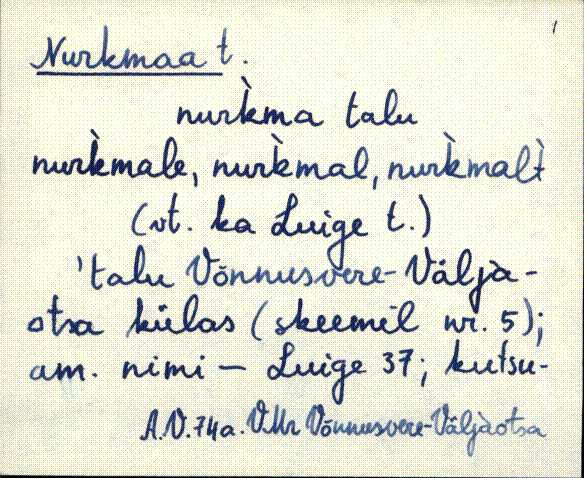 1
Nurkmaa t.
nurk̀ma talu
nurk̀male, nurk̀mal, nurk̀malt̀
(vt. ka Luige t.)
'talu Võnnusvere-Väljà-
otsa külas (skeemil nr. 5);
am. nimi — Luige 37; kutsu-
A.V.74a. VMr Võnnusvere-Väljàotsa